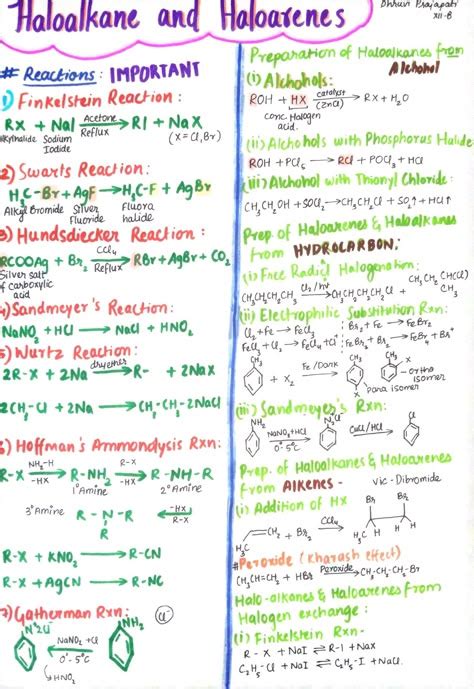 Haloalkane and Haloarenes
Dhruvi Prajapati
XII-B
# Reactions: IMPORTANT
1) Finkelstein Reaction:
RX + NaI Acetone Reflux → RI + NaX
Alkylhalide Sodium Iodide (X=Cl,Br)
2) Swarts Reaction:
H₃C-Br + AgF → H₃C-F + AgBr
Alkyl Bromide Silver Fluoride Fluora halide
3) Hundsdiecker Reaction:
RCOOAg + Br₂ CCl₄ Reflux → RBr + AgBr + CO₂
Silver salt of carboxylic acid
4) Sandmeyer's Reaction:
NaNO₂ + HCl → NaCl + HNO₂
5) Wurtz Reaction:
2R-X + 2Na dry ether → R- + 2NaX
2CH₃-Cl + 2Na → CH₃-CH₃-2NaCl
6) Hoffman's Ammondysis Rxn:
R-X NH₂-H -HX → R-NH₂ R-X -HX → R-NH-R
1°Amine 2°Amine
3°Amine R-N-R ← R-X -HX
R
R-X + KNO₂ → R-CN
R-X + AgCN → R-NC
7) Gatherman Rxn: Cl
NH₂
NaNO₂ + Cl
0°-5°C
HNO₂
Preparation of Haloalkanes from Alchohol
(i) Alchohols:
ROH + HX catalyst (ZnCl) → RX + H₂O
conc. Halogen acid.
(ii) Alchohols with Phosphorus Halide
ROH + PCl₅ → RCl + POCl₃ + HCl
(iii) Alchohol with Thionyl Chloride:
CH₃CH₂OH + SOCl₂ → CH₃CH₂Cl + SO₂↑ + HCl↑
Prep. of Haloarenes & Haloalkanes
from HYDROCARBON:
(i) Free Radicl Halogenation:
CH₃CH₂CH₂CH₃ Cl₂/
(ii) Electrophilic Substitution Rxn:
Cl₂ + Fe → FeCl₃ Br₂ + Fe → FeBr₂
FeCl₃ + Cl₂ → FeCl₄ + Cl FeBr₃ + Br₂ → FeBr₄ + Br⁺
CH₃ CH₃ X CH₃
+ X₂ Fe/Dark → ortho isomer
X para isomer
(iii) Sandmeyer's Rxn:
NH₂ Cl
NaNO₂+HCl 0°-5°C CuCl/HCl
Prep. of Haloalkanes & Haloarenes
from Alkenes - vic-Dibromide
(i) Addition of HX Br Br
H₃C CH₂ + Br₂ CCl₄ → H₃C H H
#Peroxide (Kharash effect)
CH₃CH=CH₂ + HBr Peroxide → CH₃-CH₂-CH₂-Br
Halo-alkanes & Haloarenes from
Halogen exchange:
(i) Finkelstein Rxn-
R-X + NaI ⇌ R-I + NaX
C₂H₅-Cl + NaI ⇌ C₂H₅-I + NaCl.